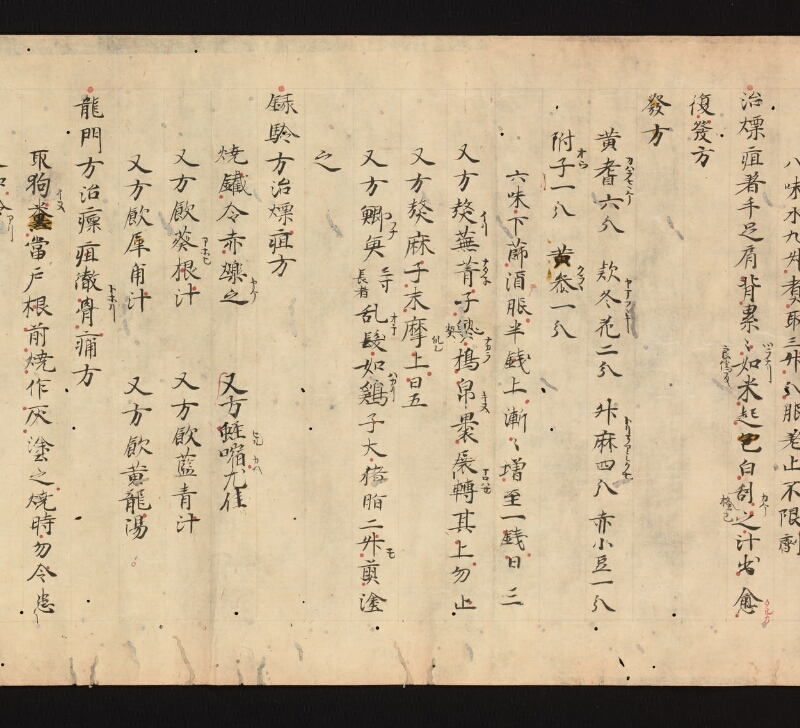 八味水九升煮取三升分服老止不限劑
治熛疽著手足肩背累〻如米起色白刮之汁出愈
復發方
發方
黄耆六分 款冬花二分 升麻四分 赤小豆一分
附子一分 黄芩一分
六味下篩酒服半錢上漸〻増至一錢日三
又方熬蕪菁子熟搗帛裹展轉其上勿止
又方熬麻子末摩上日五
又方鯽魚三寸長者乱髮如鶏子大猪脂二升煎塗
之
録驗方治熛疽方
焼鐵令赤爍之 又方蛭嗍尤佳
又方飲葵根汁 又方飲藍青汁
又方飲犀角汁 又方飲黄龍湯
龍門方治瘭疽徹骨痛方
取狗糞當戸根前焼作灰塗之焼時勿令患